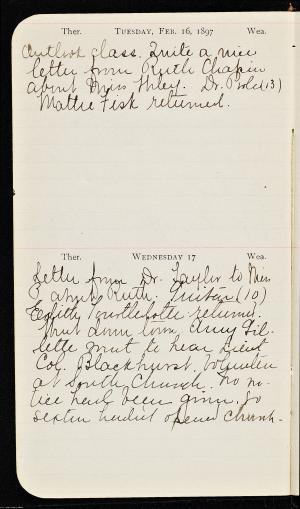 Ther. TUESDAY, FEB. 16, 1897 Wea.
glass. Quite a nice
letter from Ruth Chapin
about Miss Dr. (13)
Mattie Fisk returned.
Ther. WEDNESDAY 17 Wea.
Letter from Dr. Taylor to Miss
P about Ruth. (10)
returned.
Went down town. Amy Gil-
lette went to hear Lieut
Col. Blackhurst, Volunteer
at South Church. No no-
tice had been given, so
sexton hadn't opened church.